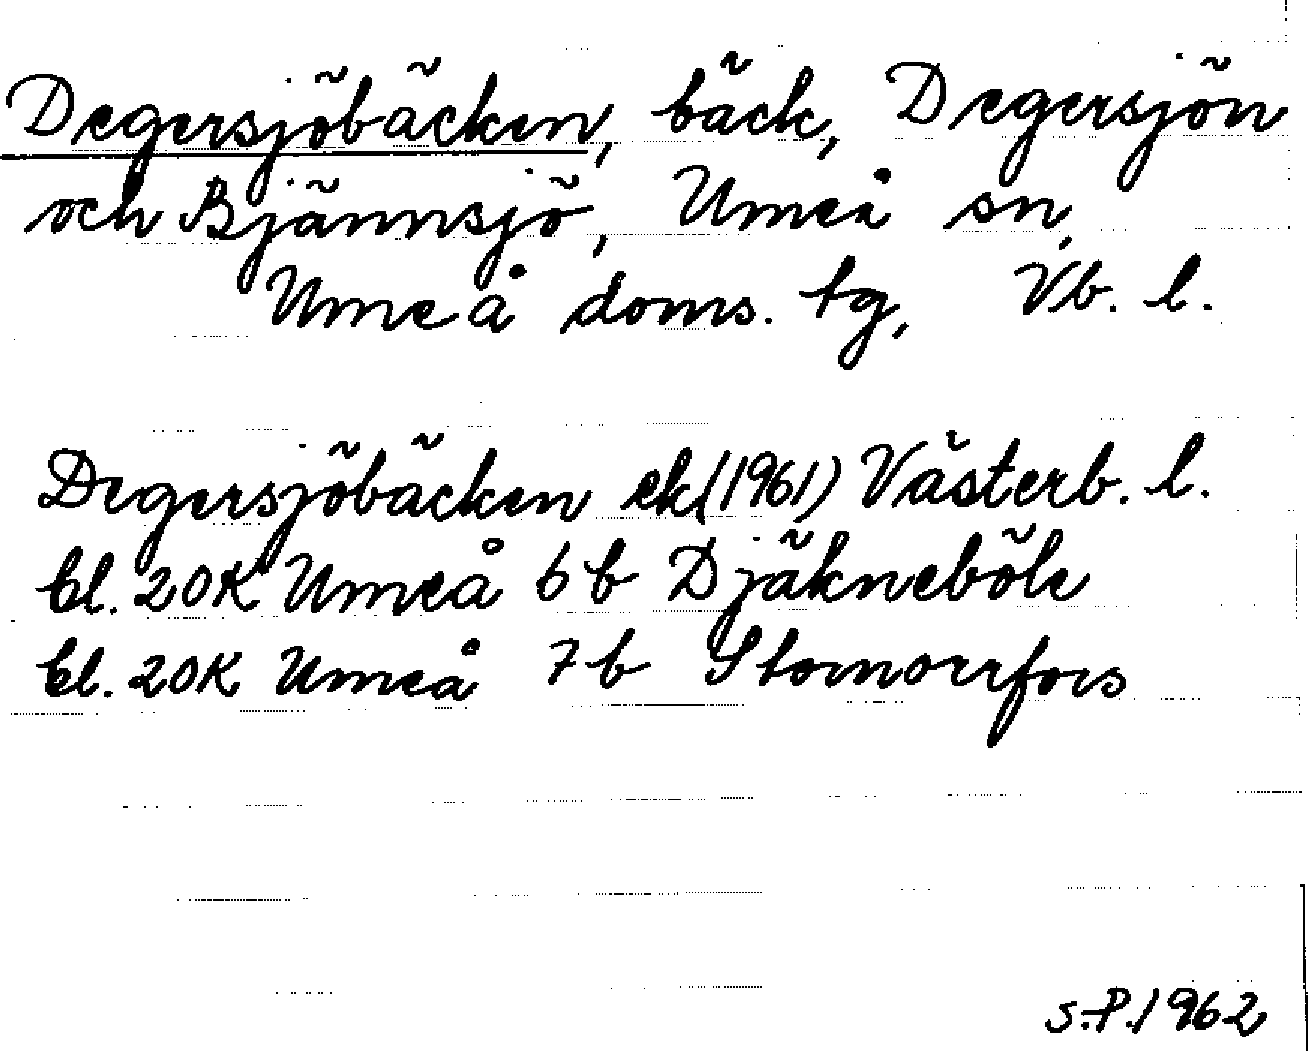 Degersjöbäcken, bäck, Degersjön
och Bjännsjö, Umeå sn,
Umeå doms. tg, Vb. l.
Degersjöbäcken ek (1961) Västerb. l.
bl. 20K Umeå 6b Djäkneböle
bl. 20K Umeå 7b Stornorrfors
S.P. 1962